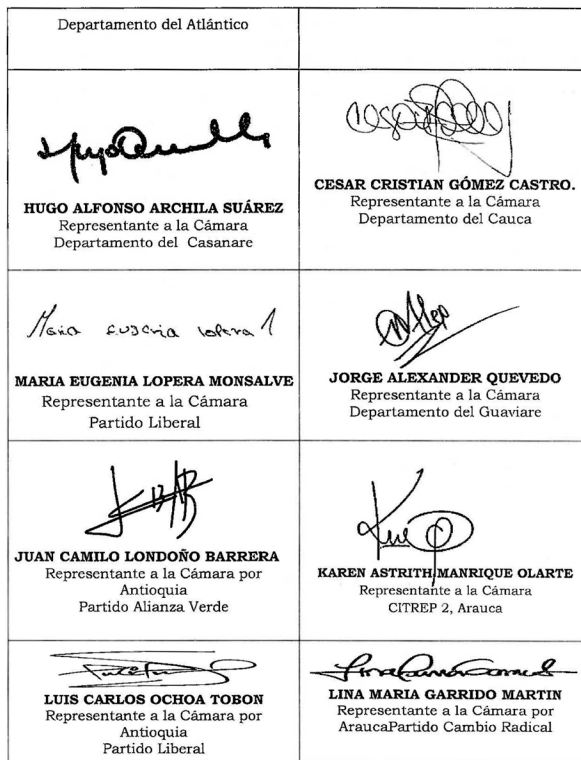 Departamento del Atlántico
HUGO ALFONSO ARCHILA SUÁREZ
Representante a la Cámara
Departamento del Casanare
CESAR CRISTIAN GÓMEZ CASTRO.
Representante a la Cámara
Departamento del Cauca
Maria Eugenia Lopera
MARIA EUGENIA LOPERA MONSALVE
Representante a la Cámara
Partido Liberal
JORGE ALEXANDER QUEVEDO
Representante a la Cámara
Departamento del Guaviare
JUAN CAMILO LONDOÑO BARRERA
Representante a la Cámara por
Antioquia
Partido Alianza Verde
KAREN ASTRITH MANRIQUE OLARTE
Representante a la Cámara
CITREP 2, Arauca
LUIS CARLOS OCHOA TOBON
Representante a la Cámara por
Antioquia
Partido Liberal
LINA MARIA GARRIDO MARTIN
Representante a la Cámara por
AraucaPartido Cambio Radical